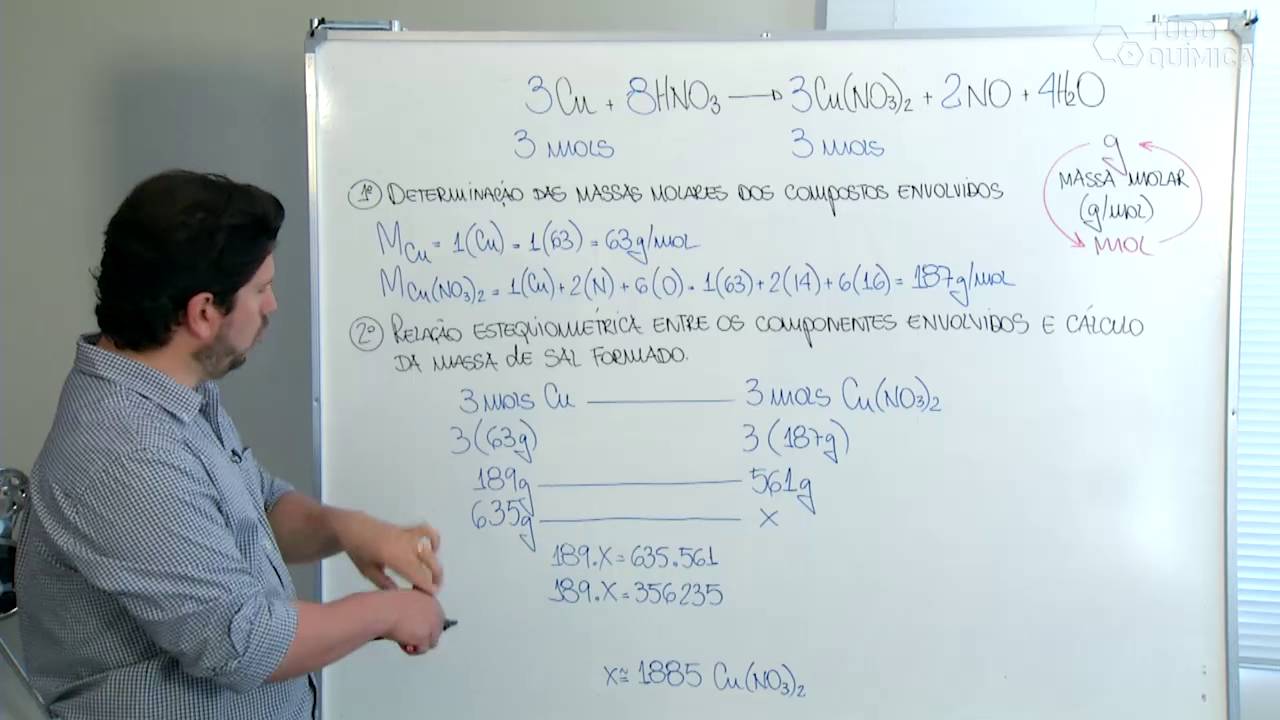 TUDO
QUÍMICA
3Cu + 8HNO₃ → 3Cu(NO₃)₂ + 2NO + 4H₂O
3 mols 3 mols
1º DETERMINAÇÃO DAS MASSAS MOLARES DOS COMPOSTOS ENVOLVIDOS
g
MASSA MOLAR
(g/mol)
MOL
M Cu = 1(Cu) = 1(63) = 63g/mol
M Cu(NO₃)₂ = 1(Cu)+2(N)+6(O) = 1(63)+2(14)+6(16) = 187g/mol
2º RELAÇÃO ESTEQUIOMÉTRICA ENTRE OS COMPONENTES ENVOLVIDOS E CÁLCULO
DA MASSA de SAL FORMADO.
3 mols Cu —— 3 mols Cu(NO₃)₂
3(63g) 3(187g)
189g —— 561g
635g —— X
189.X = 635.561
189.X = 356235
X ≅ 1885 Cu(NO₃)₂